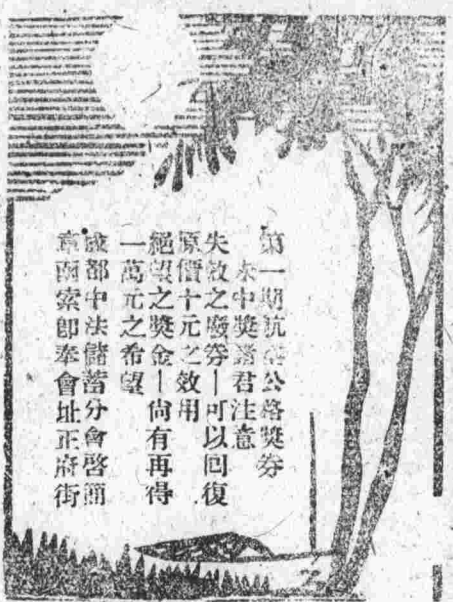 第一期公路獎券
未中獎諸君注意
失敗之廢券—可以回復
原價十元之效用
絕望之獎金—尚有再得
一萬元之希望
成都中法儲蓄分會啓簡
章函索卽奉會址正府街